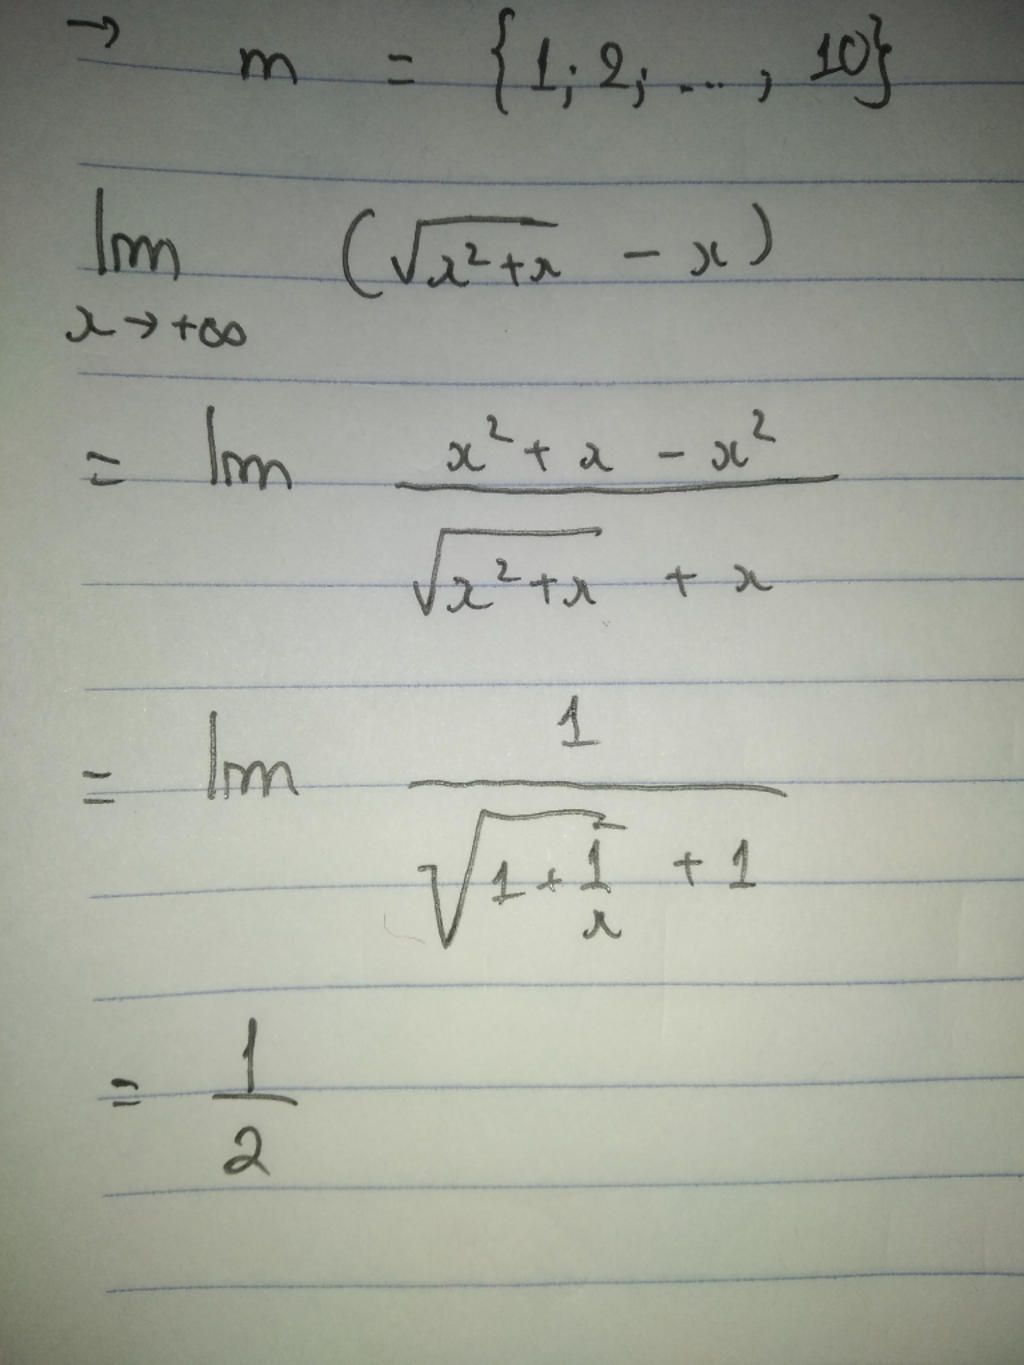 → m = {1; 2; ..., 10}
lim (√(x²+x) - x)
x→+∞
= lim (x² + x - x²)/(√(x²+x) + x)
= lim 1/(√(1+1/x) + 1)
= 1/2